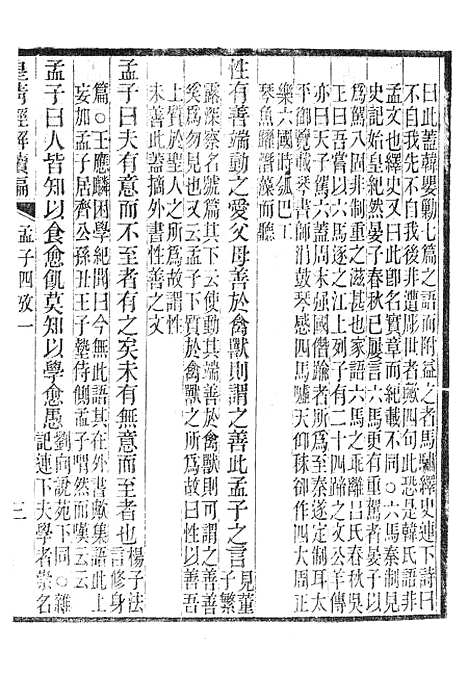 曰此蓋韓嬰勦七篇之語而附益之者馬驌繹史連下詩曰
不自我先不自我後非遭彫世者歟四句恐是韓氏語非
孟文也繹史又曰此卽名實章而紀載不同○六馬秦制見
史記始皇紀然晏子春秋已屢言六馬更有重者晏子以
為駕八固非制重之滋甚也家語六馬之乖離呂氏春秋吳
王曰吾嘗以六馬逐之江上列子有二十四蹄之文公羊傳
亦曰天子駕六蓋周末彊國僭踰者所爲或至秦遂定制耳太
平御覽載師涓鼓琴感四馬噓天仰秣御作四大周正
樂六國時狐巴工
琴魚躍潛藻而聽
性有善端動之愛父母善於禽獸則謂之善此孟子之言見董
子繁
露深察名號篇其下云使動其端善於禽獸則可謂之善善
奚爲勿見也又云孟子下質於禽獸之所爲故曰性以善吾
上質於聖人之所爲故謂性
未善此蓋摘外書性善之文
孟子曰夫有意而不至者有之矣未有無意而至者也楊子法
言修身
篇○王應麟困學紀聞曰今無此語其在外書歟集語此上
妄加孟子居齊公孫丑王子墊侍側孟子喟然而嘆云云
孟子曰人皆知以食愈飢莫知以學愈愚劉向說苑下同○雜
記連下夫學者崇名
皇淸經解續編
孟子四攷一
三